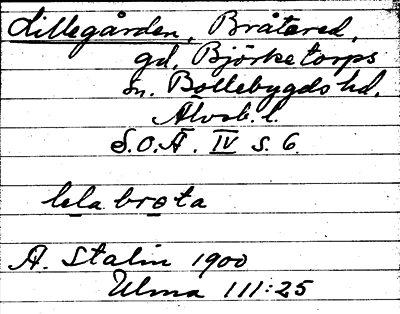 Lillegården, Bråtered,
gd, Björketorps
sn. Bollebygds hd.
Älvsb. l.
S.O.Ä. IV s. 6.
lela brota
A. Stalin 1900
Ulma 111:25